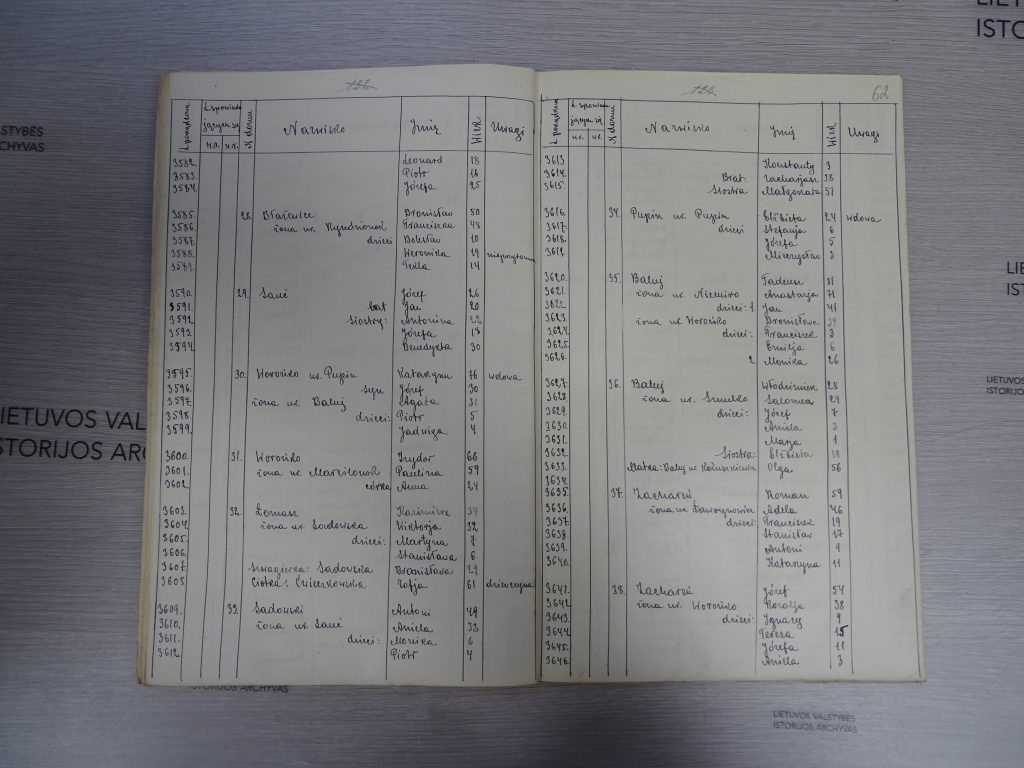 LIET
ISTO
LSTYBĖS
RCHYVAS
62
L. porządkowa L. spowiadających się N domu Nazwisko Imię Wiek Uwagi
m.p. m.k.
3582. Leonard 18
3583. Piotr 16
3584. Józefa 25
3585. 28. Bronisław 50
3586. żona ur. Franciszka 48
3587. dzieci Bolesław 10
3588. Weronika 19
3589. Tekla 14
3590. 29. Sanć Józef 26
3591. brat Jan 20
3592. siostry: Antonina 22
3593. Józefa 13
3594. Benedykta 30
3595. 30. Worońko ur. Pupin Katarzyna 76 wdowa
3596. syn Józef 30
3597. żona ur. Baluj Agata 31
3598. dzieci: Piotr 5
3599. Jadwiga 4
3600. 31. Worońko Izydor 66
3601. żona ur. Marcilonok Paulina 59
3602. córka Anna 24
3603. 32. Kazimierz 34
3604. żona ur. Sadowska Wiktorja 32
3605. dzieci: Martyna 7
3606. Stanisława 6
3607 Szwagierka: Sadowska Bronisława 29
3608. Ciotka: Ćwieczkowska Zofja 61
3609. 33. Sadowski Antoni 49
3610. żona ur. Sanć Aniela 33
3611. dzieci: Monika 6
3612. Piotr 4
L. porządkowa L. spowiadających się N domu Nazwisko Imię Wiek Uwagi
m.p. m.k.
3613. Konstanty 3
3614. Brat: Zacharjasz 38
3615. Siostra Małgorzata 51
3616. 34. Pupin ur. Pupin Elżbieta 24 wdowa
3617. dzieci Stefanja 6
3618. Józefa 5
3619. Mieczysław 3
3620. 35. Baluj Tadeusz 31
3621. żona ur. Niemiro Anastazja 71
3622. dzieci: 1. Jan 41
3623. żona ur. Worońko Bronisława 34
3624. dzieci: Franciszek 3
3625. Emilja 6
3626. 2. Monika 26
3627. 36. Baluj Włodzimierz 28
3628. żona ur. Salomea 29
3629. dzieci: Józef 7
3630. Aniela 3
3631. Marja 1
3632. Siostra: Elżbieta 18
3633. Matka: Baluj ur. Olga 56
3634.
3635. 37. Zacharzé Roman 59
3636. żona ur. Adela 46
3637. dzieci: Franciszek 19
3638. Stanisław 17
3639. Antoni 4
3640. Katarzyna 11
3641. 38. Zacharzé Józef 54
3642. żona ur. Worońko Rozalja 38
3643. dzieci: Ignacy 9
3644. Teresa 15
3645. Józefa 11
3646. Aniela 3
LIETUVOS VALSTYBĖS
ISTORIJOS ARCHYVAS
ISTORIJOS ARCHYVAS
LIETUVOS VALSTYBĖS
ISTORIJOS ARCHYVAS